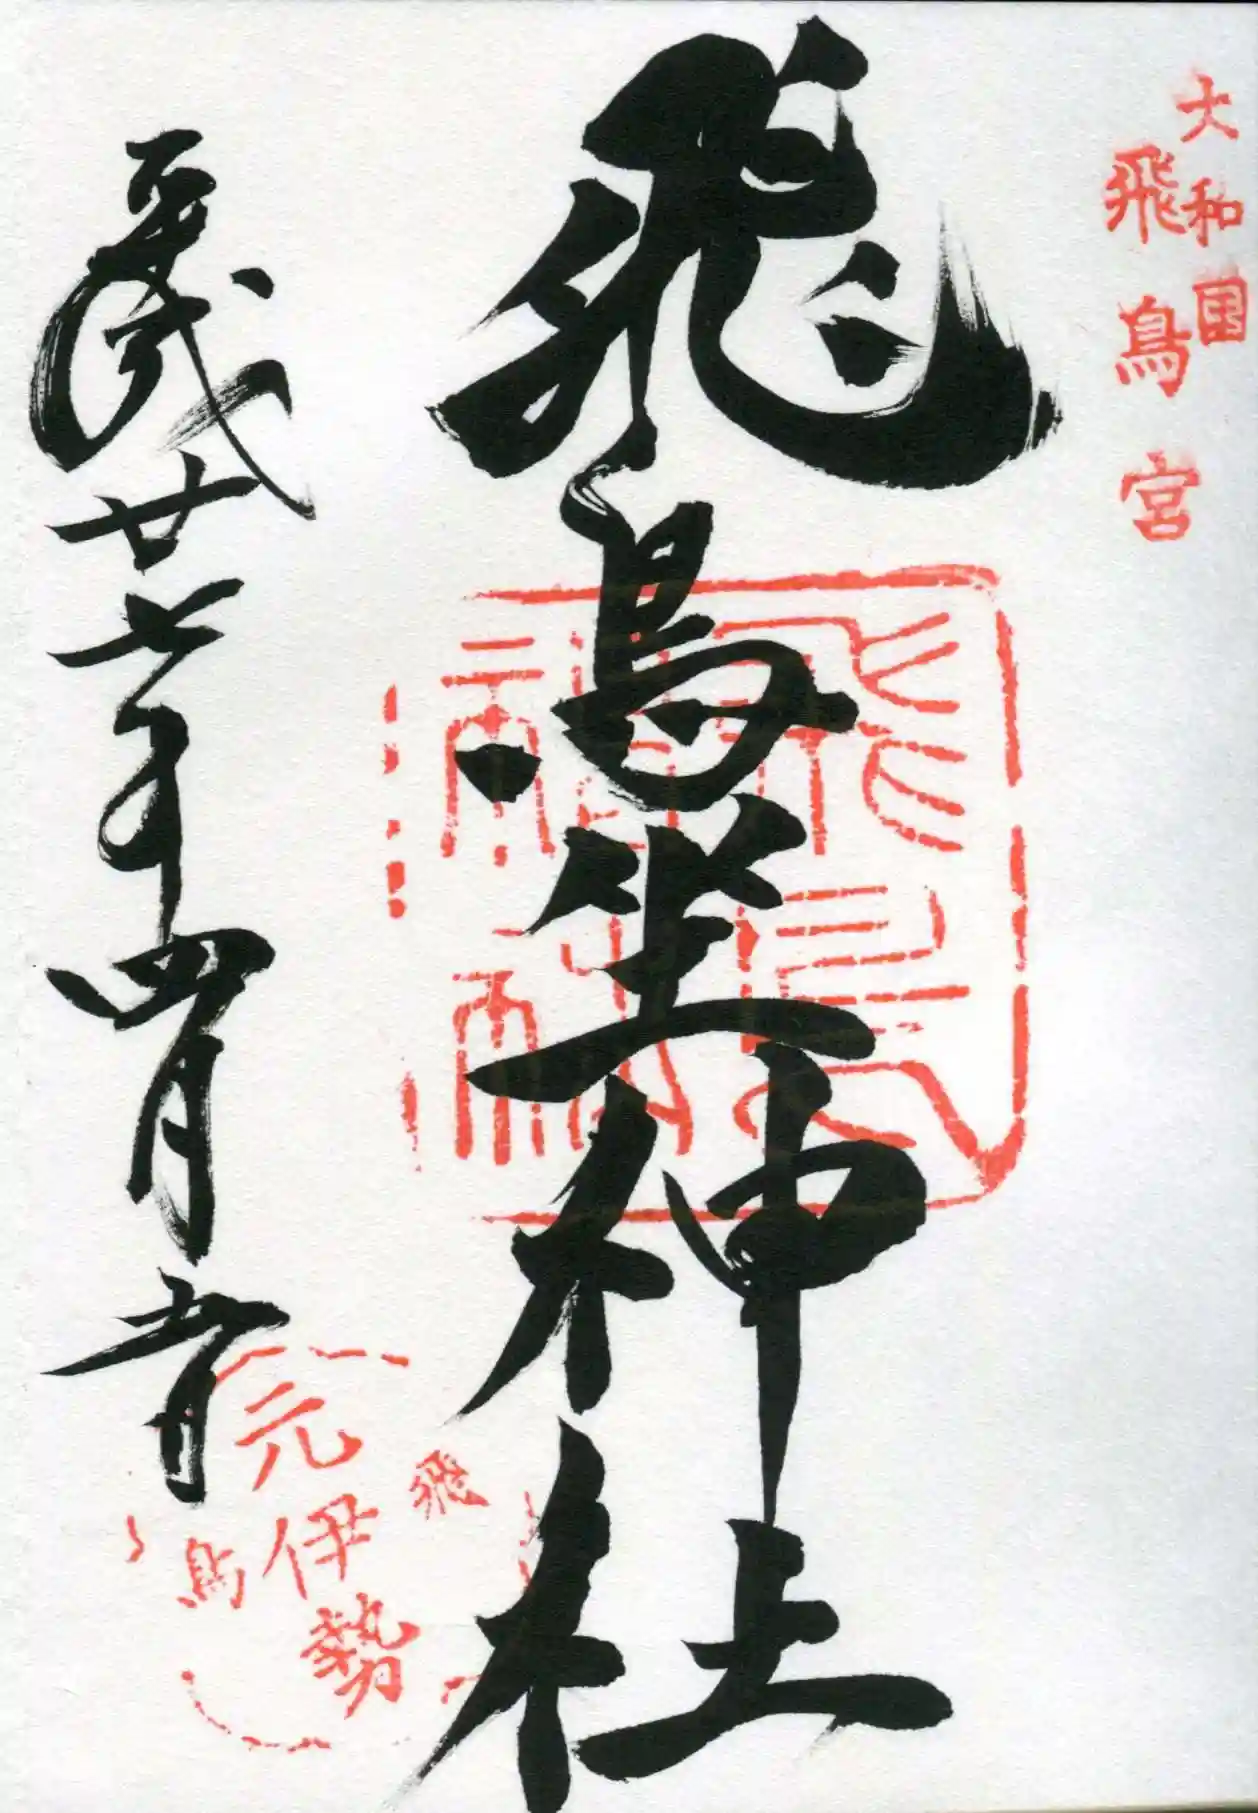 大和国
飛鳥宮
飛鳥坐神社
飛鳥
神社
平成廿七年四月五日
飛鳥
元伊勢